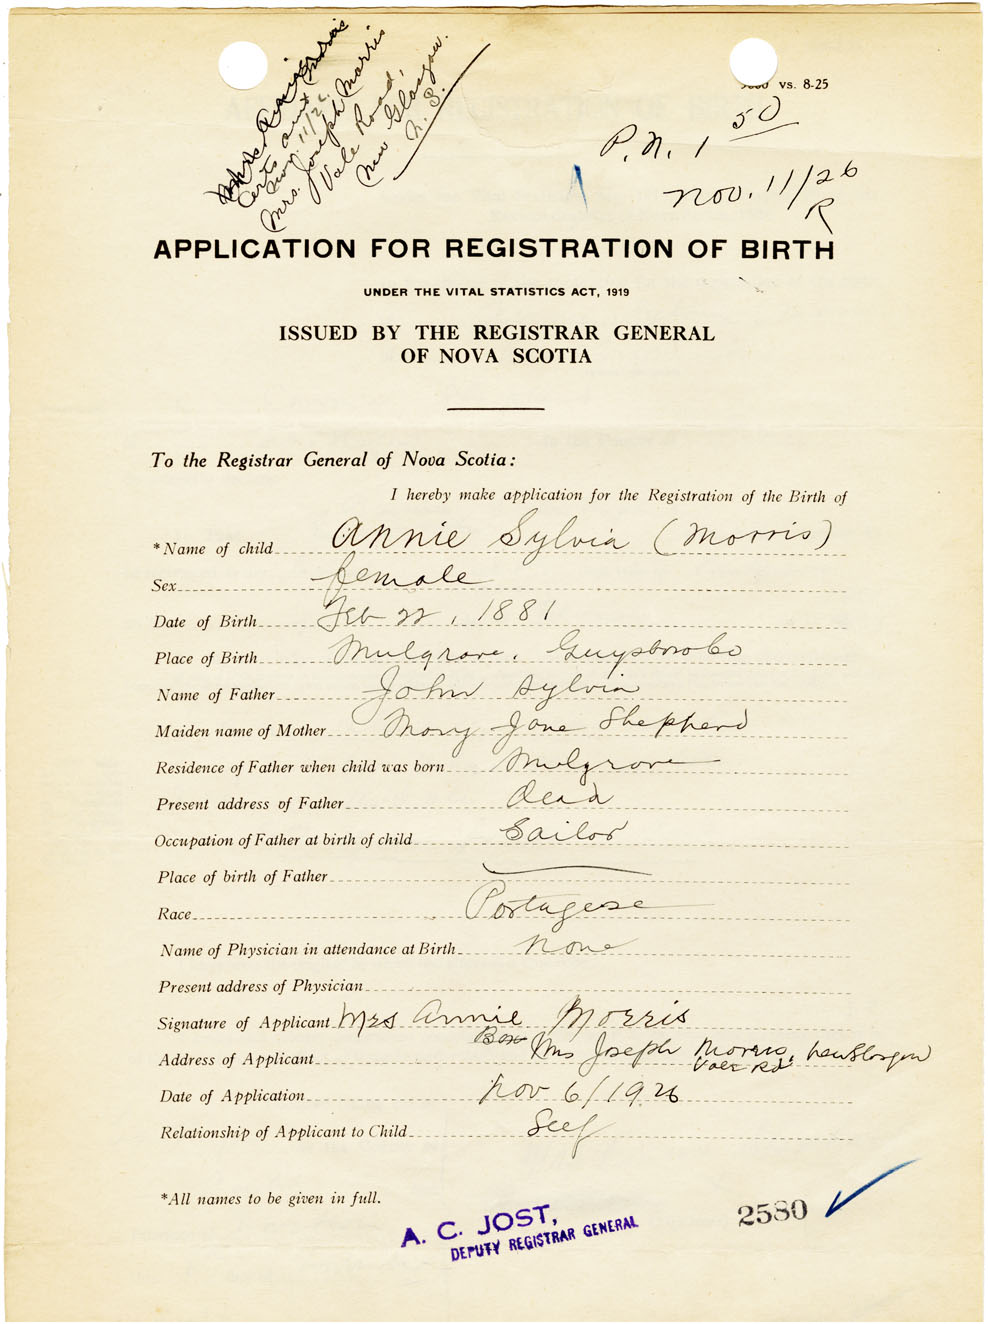 Certs sent
Nov. 11/26.
Mrs. Joseph Morris
Vale Road,
New Glasgow.
N. S.
vs. 8-25
P.N. 1 50
Nov. 11/26
R
APPLICATION FOR REGISTRATION OF BIRTH
UNDER THE VITAL STATISTICS ACT, 1919
ISSUED BY THE REGISTRAR GENERAL
OF NOVA SCOTIA
To the Registrar General of Nova Scotia:
I hereby make application for the Registration of the Birth of
*Name of child Annie Sylvia (Morris)
Sex female
Date of Birth Feb 22, 1881
Place of Birth Mulgrave, Guysboro Co
Name of Father John Sylvia
Maiden name of Mother Mary Jane Shepherd
Residence of Father when child was born Mulgrave
Present address of Father dead
Occupation of Father at birth of child Sailor
Place of birth of Father
Race Portugese
Name of Physician in attendance at Birth none
Present address of Physician
Signature of Applicant Mrs Annie Morris
Address of Applicant Box Mrs Joseph Morris, New Glasgow
Vale Rd
Date of Application Nov 6/1926
Relationship of Applicant to Child Self
*All names to be given in full.
A. C. JOST,
DEPUTY REGISTRAR GENERAL
2580